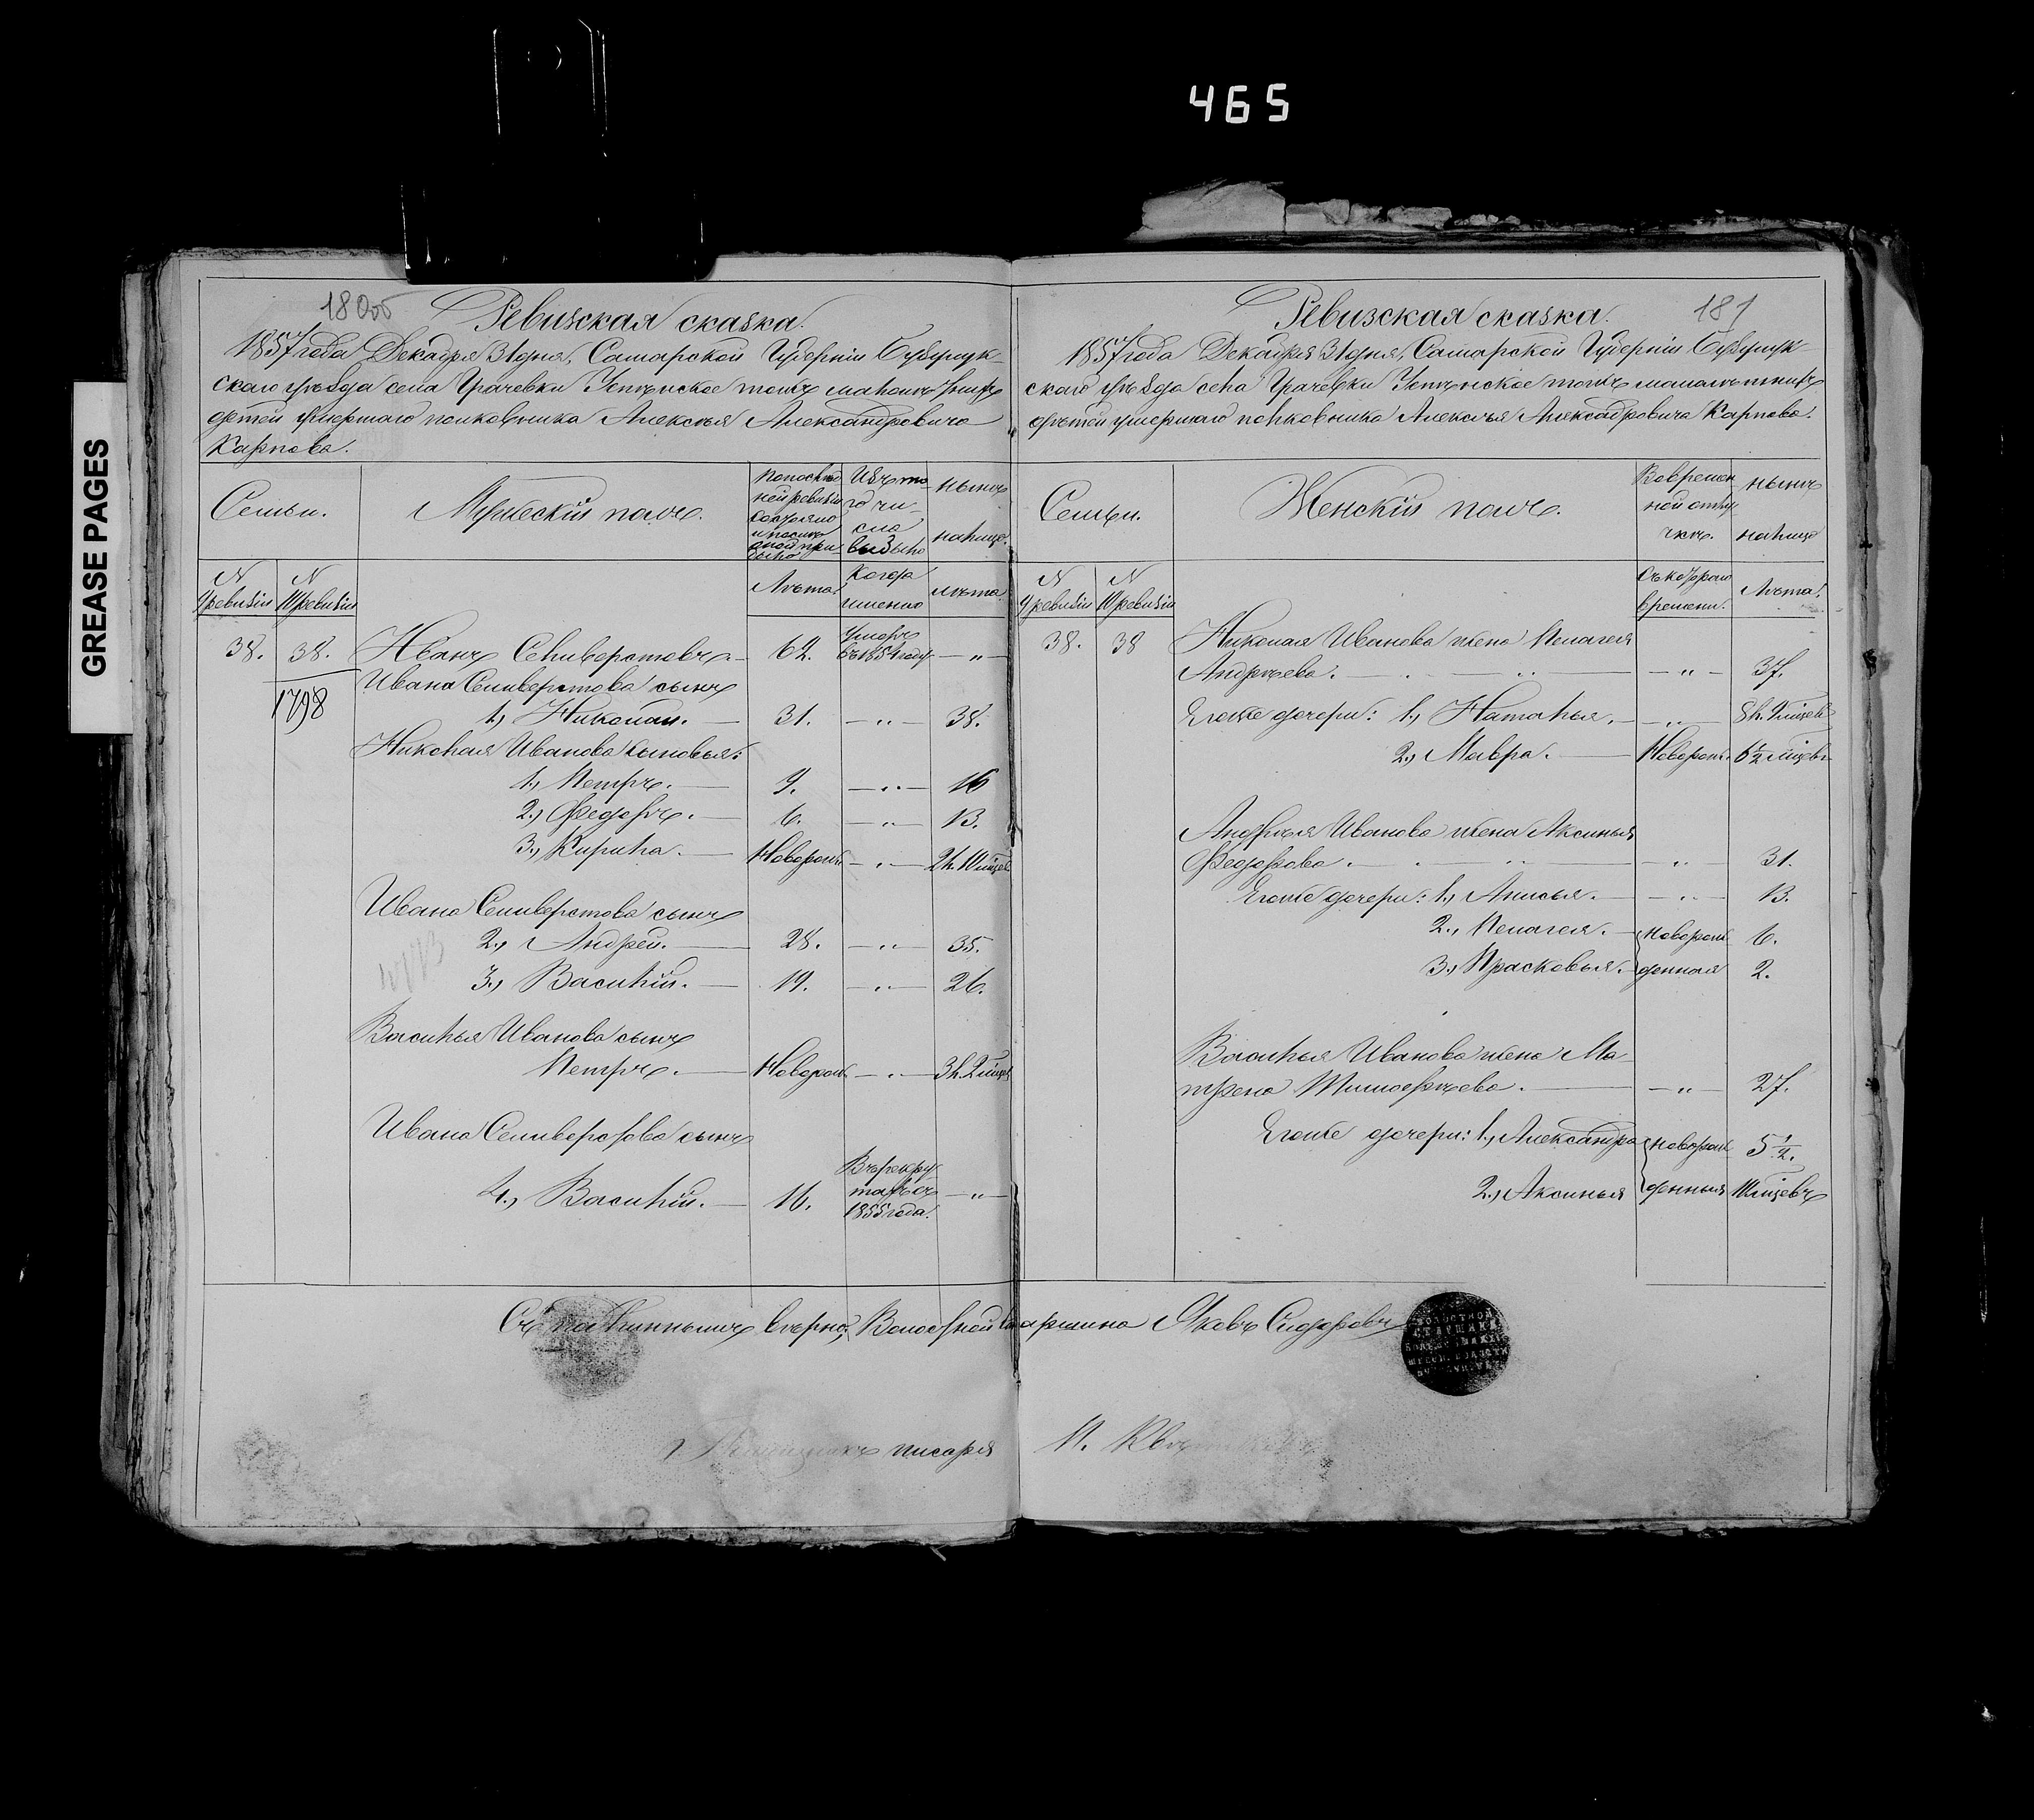 465
GREASE PAGES
180об
Ревизская сказка.
1857 года Декабря 31 дня, Самарской Губерніи Бузулук-
скаго уѣзда села Грачевки тожъ малолѣтнихъ
детей умершаго полковника Алексѣя Александровича
Карпова.
Семьи.
Мужескій полъ.
По послѣд
ней ревизіи
состояло
и послѣ
оной при
было
Изъ то
го чи-
сла
выбыло
нынѣ
налицо.
N
IX ревизіи
N
X ревизіи
Лѣта.
Когда
именно
лѣта.
38. 38. Иванъ Селиверстовъ — 62. Умеръ въ 1854 году — „ —
1798
Ивана Селиверстова сынъ
1, Николай. — 31. — „ — 38.
Николая Иванова сыновья:
1, Петръ. — 9. — „ — 16
2, Федоръ. — 6. — „ — 13.
3, Кирила. — Новорож. — „ — 2 л. 10 мѣцев
Ивана Селиверстова сынъ
2, Андрей. — 28. — „ — 35.
3, Василій. — 19. — „ — 26.
Василья Иванова сынъ
Петръ. — Новорож. — „ — 3 л. 2 мѣцев
Ивана Селиверстова сынъ
4, Василій. — 16. Въ рекру
тахъ съ
1855 года. — „ —
181
Ревизская сказка.
1857 года Декабря 31 дня, Самарской Губерніи Бузулук-
скаго уѣзда села Грачевки тожъ малолѣтнихъ
дѣтей умершаго полковника Алексѣя Александровича Карпова.
Семьи.
Женскій полъ.
Во времен
ной отлу
чкѣ.
нынѣ
налицо
N
IX ревизіи
N
X ревизіи
Съ котораго
времени.
Лѣта.
38. 38 Николая Иванова жена Пелагея
Андреева. — „ — 37.
Его же дочери: 1, Наталья. — „ — 8 л. 9 мѣцев
2, Мавра. — Новорож. 6½ мѣцевъ
Андрея Иванова жена Аксинья
Федорова. — „ — 31.
Его же дочери: 1, Анисья. — „ — 13.
2, Пелагея. — новорож 6.
3, Прасковья. — денная 2.
Василья Иванова жена Ма
трена Тимофеева. — „ — 27.
Его же дочери: 1, Александра новорож 5½.
2, Аксинья денныя 10 мѣцевъ
Съ подлиннымъ вѣрно, Волостной Старшина Яковъ Сидоровъ
писаря